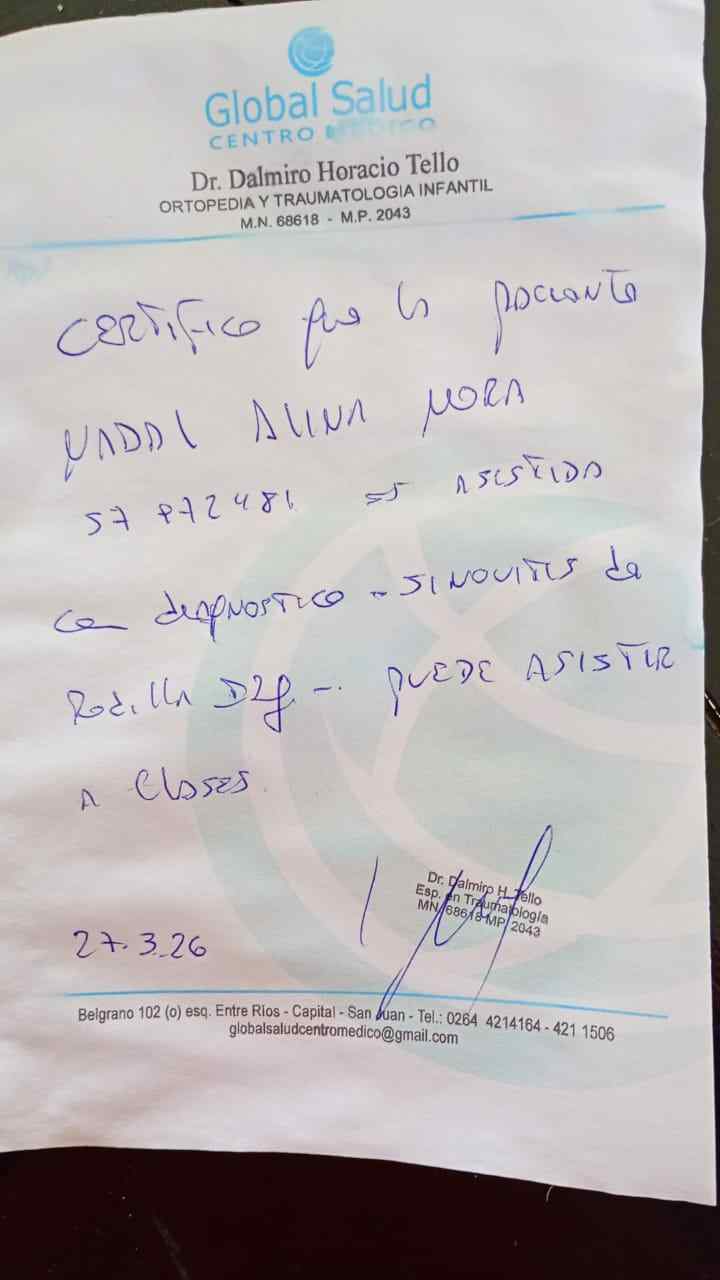 Global Salud
CENTRO MEDICO
Dr. Dalmiro Horacio Tello
ORTOPEDIA Y TRAUMATOLOGIA INFANTIL
M.N. 68618 - M.P. 2043
CERTIFICO que la paciente
NADAL ALINA NORA
57 872481 es ASISTIDA
con diagnostico - SINOVITIS de
Rodilla - PUEDE ASISTIR
A Clases.
Dr. Dalmiro H. Tello
Esp. en Traumatología
MN 68618 MP 2043
27.3.26
Belgrano 102 (o) esq. Entre Rios - Capital - San Juan - Tel.: 0264 4214164 - 421 1506
globalsaludcentromedico@gmail.com